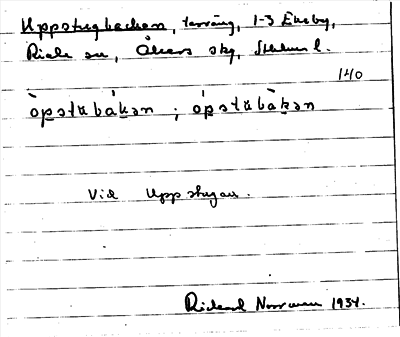 Uppstugbacken, terräng, 1-3 Ekeby,
Riala sn, Åkers skg, Sthlms l.
140
òpstùbàkan ; ópstùbàkan
Vid Uppstugan.
Rickard Norrman 1934.